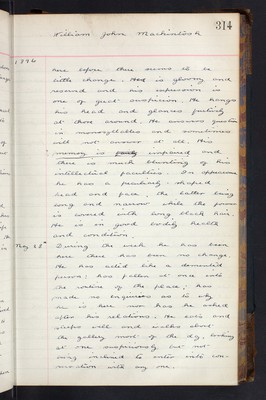 314
William John Mackintosh
1896
here before there seems to be
little change. He is gloomy and
reserved and his expression is
one of great suspicion. He hangs
his head and glances furtively
at those around. He answers questions
in monosyllables and sometimes
will not answer at all. His
memory is impaired and
there is much blunting of his
intellectual faculties. In appearance
he has a peculiarly shaped
head and face the latter being
long and narrow while the
is covered with long black hair.
He is in good bodily health
and condition.
May 25th During the week he has been
here there has been no change.
He has acted like a demented
person; has fallen at once into
the routine of the place; has
made no enquiries as to why
he is here nor has he asked
after his relations. He eats and
sleeps well and walks about
the gallery most of the day, looking
at one suspiciously but not
inclined to enter into con-
versation with any one.